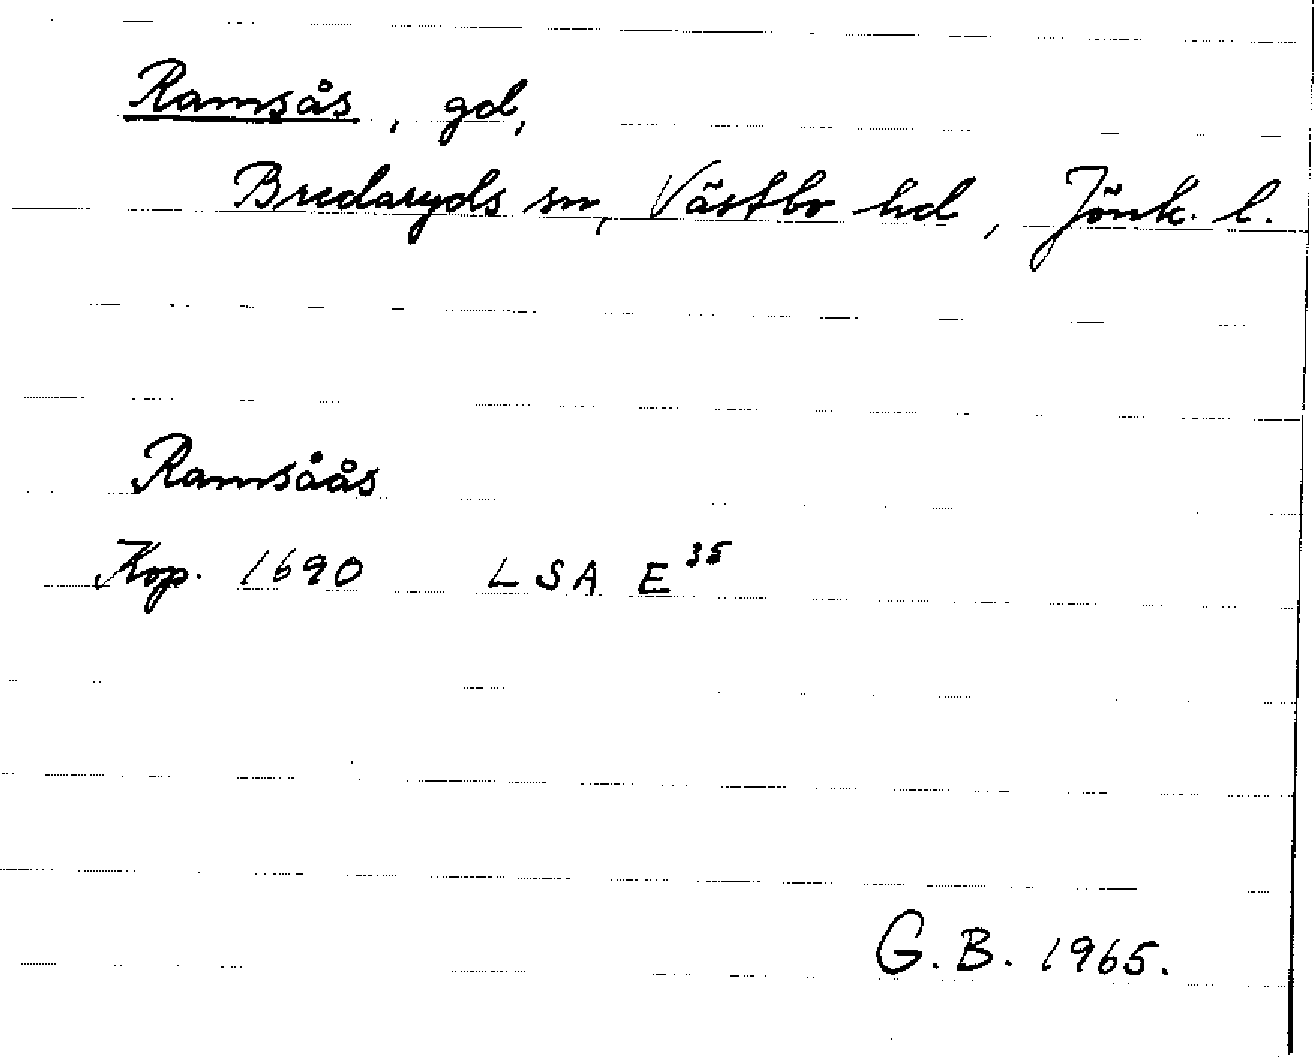 Ramsås, gd,
Bredaryds sn, Västbo hd, Jönk. l.
Ramsåås
Kop. 1690 LSA E³⁵
G.B. 1965.